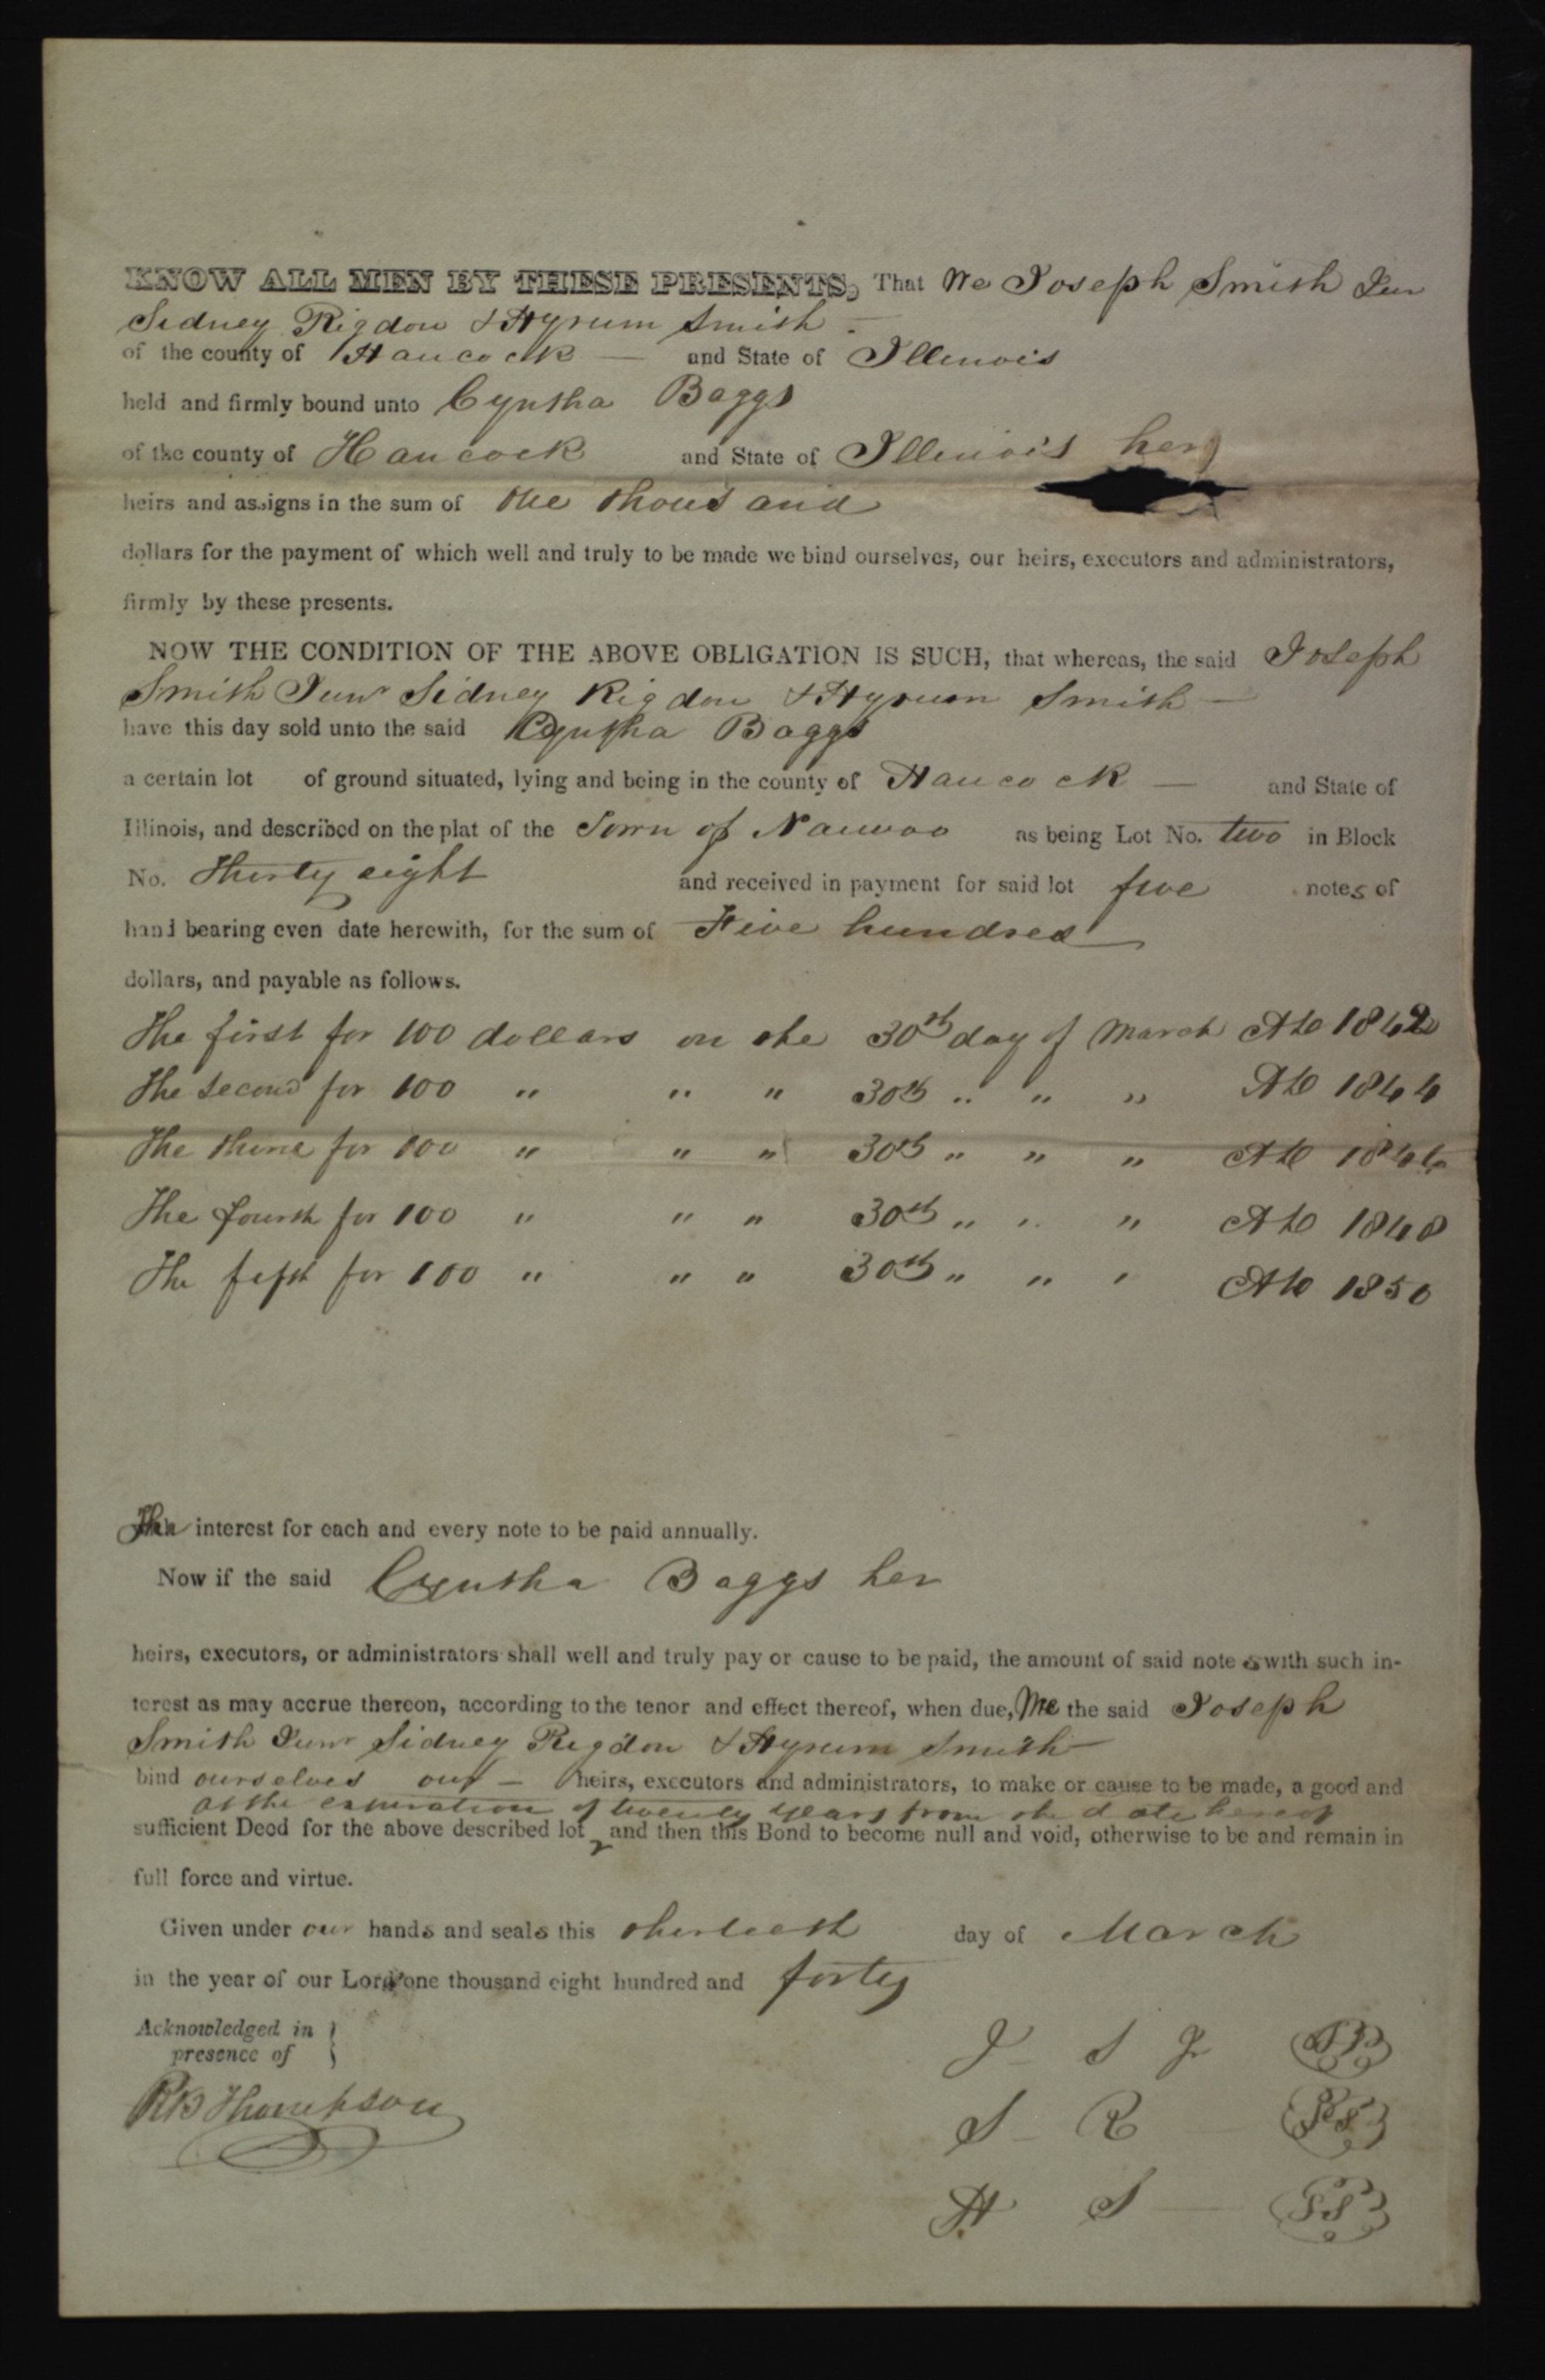 KNOW ALL MEN BY THESE PRESENTS, That We Joseph Smith Jun
Sidney Rigdon & Hyrum Smith —
of the county of Hancock — and State of Illinois
held and firmly bound unto Cyntha Baggs
of the county of Hancock and State of Illinois her
heirs and assigns in the sum of one thousand
dollars for the payment of which well and truly to be made we bind ourselves, our heirs, executors and administrators,
firmly by these presents.
NOW THE CONDITION OF THE ABOVE OBLIGATION IS SUCH, that whereas, the said Joseph
Smith Junr Sidney Rigdon & Hyrum Smith —
have this day sold unto the said Cyntha Baggs
a certain lot of ground situated, lying and being in the county of Hancock — and State of
Illinois, and described on the plat of the Town of Nauvoo as being Lot No. two in Block
No. Thirty eight and received in payment for said lot five notes of
hand bearing even date herewith, for the sum of Five hundred
dollars, and payable as follows.
The first for 100 dollars on the 30th day of March AD 1842
The second for 100 " " " 30th " " " AD 1844
The third for 100 " " " 30th " " " AD 1846
The fourth for 100 " " " 30th " " " AD 1848
The fifth for 100 " " " 30th " " " AD 1850
The interest for each and every note to be paid annually.
Now if the said Cyntha Baggs her
heirs, executors, or administrators shall well and truly pay or cause to be paid, the amount of said notes with such in-
terest as may accrue thereon, according to the tenor and effect thereof, when due, We the said Joseph
Smith Junr Sidney Rigdon & Hyrum Smith —
bind ourselves our — heirs, executors and administrators, to make or cause to be made, a good and
at the expiration of twenty years from the date hereof
sufficient Deed for the above described lot and then this Bond to become null and void, otherwise to be and remain in
full force and virtue.
Given under our hands and seals this thirtieth day of March
in the year of our Lord one thousand eight hundred and forty
Acknowledged in
presence of
R B Thompson
J — S Jr
S — R —
H S —